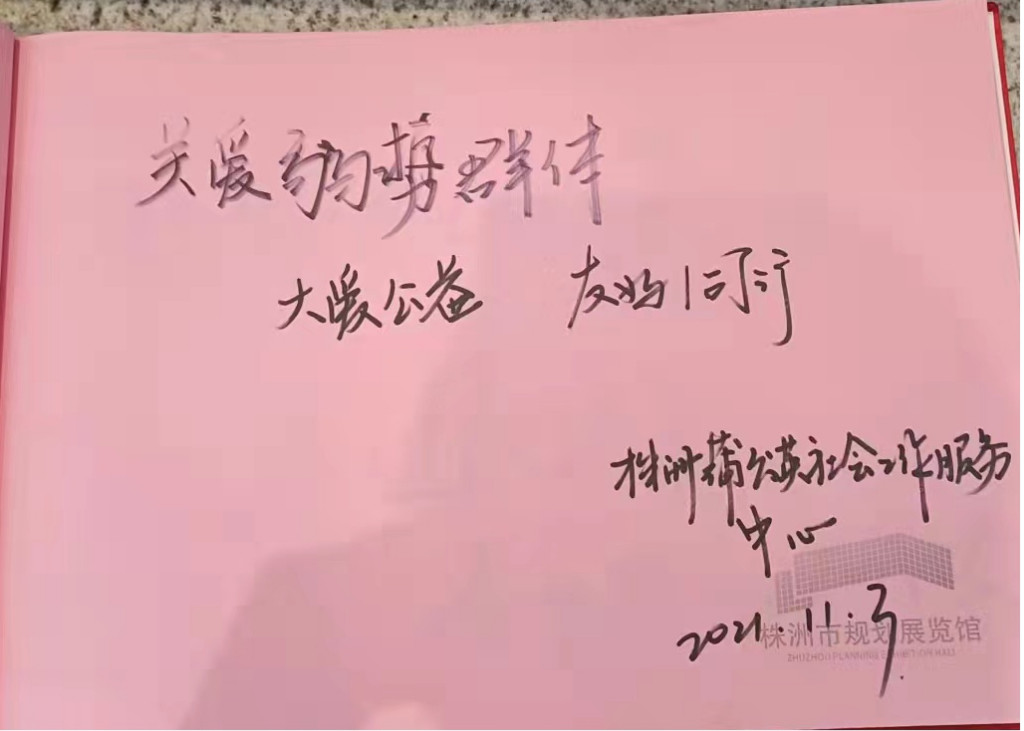 关爱弱势群体
大爱公益 友妈同行
株洲蒲公英社会工作服务
中心
2021.11.3
株洲市规划展览馆
ZHUZHOU PLANNING EXHIBITION HALL